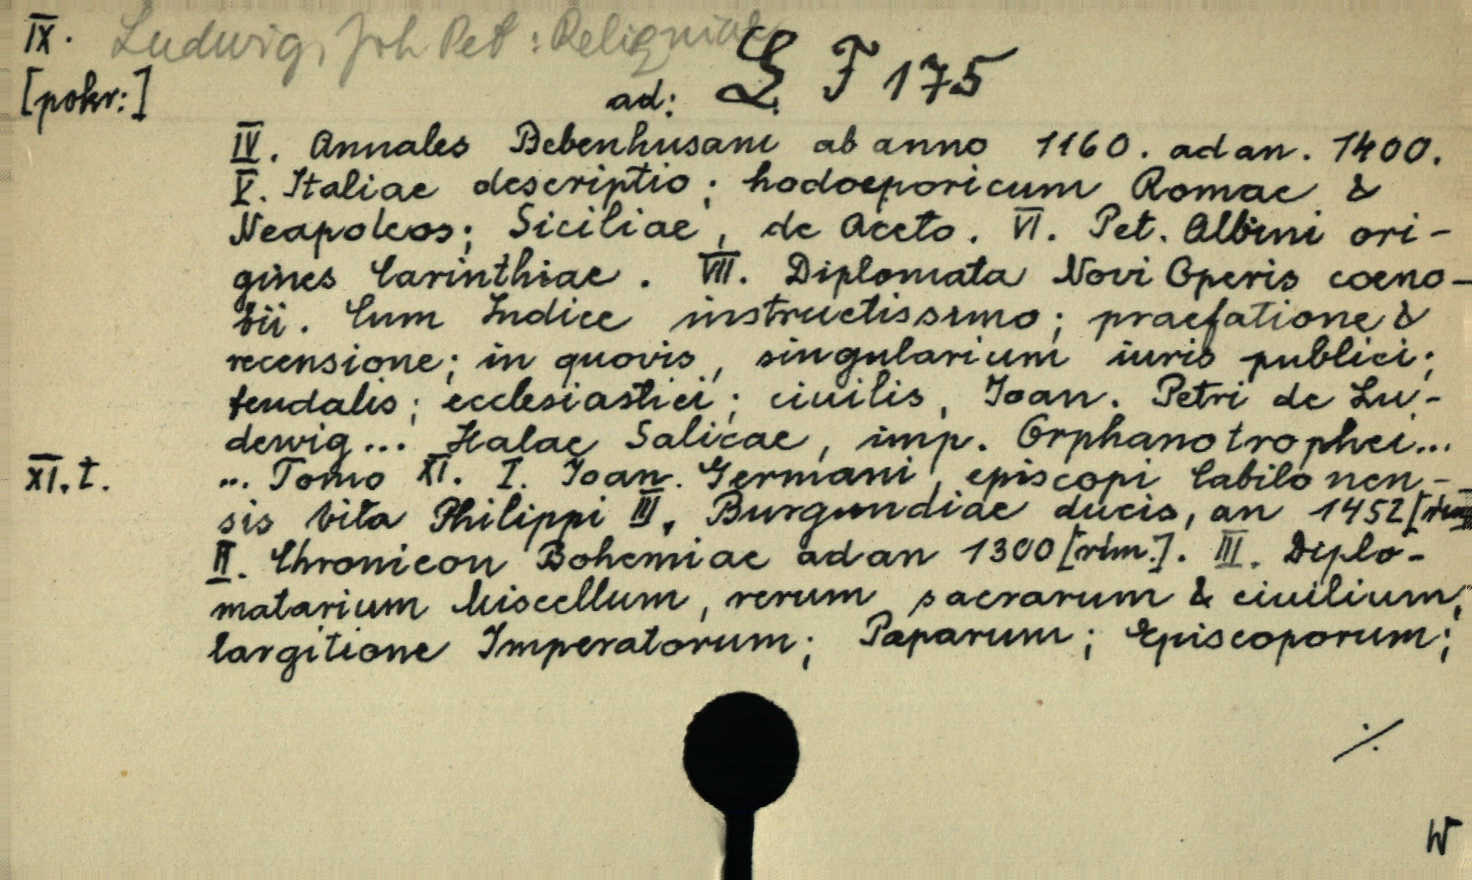 IX. Ludwig, Joh Pet: Reliqniae
[pokr:] ad: L F 175
IV. Annales Bebenhusani ab anno 1160. ad an. 1400.
V. Italiae descriptio; hodoeporicum Romae &
Neapoleos; Siciliae, de Aceto. VI. Pet. Albini ori-
gines Carinthiae. VII. Diplomata Novi Operis coeno-
bii. Cum Indice instructissimo; praefatione &
recensione; in quovis, singularium iuris publici;
feudalis; ecclesiastici; ciuilis, Joan. Petri de Lu-
dewig... Halae Salicae, imp. Orphanotrophei...
XI.t. ... Tomo XI. I. Joan. Germani, episcopi Cabilonen-
sis vita Philippi III, Burgundiae ducis, an 1452
II. Chronicon Bohemiae ad an 1300 [rkm.]. III. Diplo-
matarium Miscellum, rerum sacrarum & ciuilium;
largitione Imperatorum; Paparum; Episcoporum;
./.
W